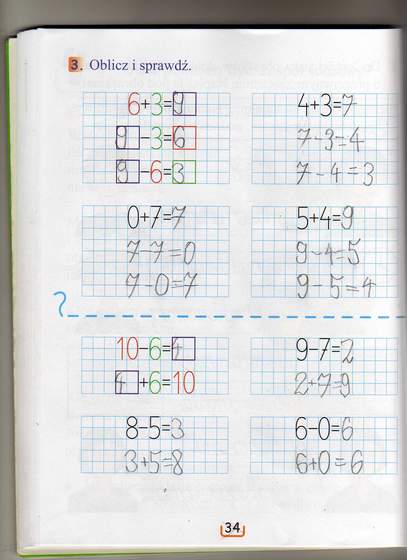 3. Oblicz i sprawdź.
6+3=9
9-3=6
9-6=3
4+3=7
7-3=4
7-4=3
0+7=7
7-7=0
7-0=7
5+4=9
9-4=5
9-5=4
10-6=4
4+6=10
9-7=2
2+7=9
8-5=3
3+5=8
6-0=6
6+0=6
34